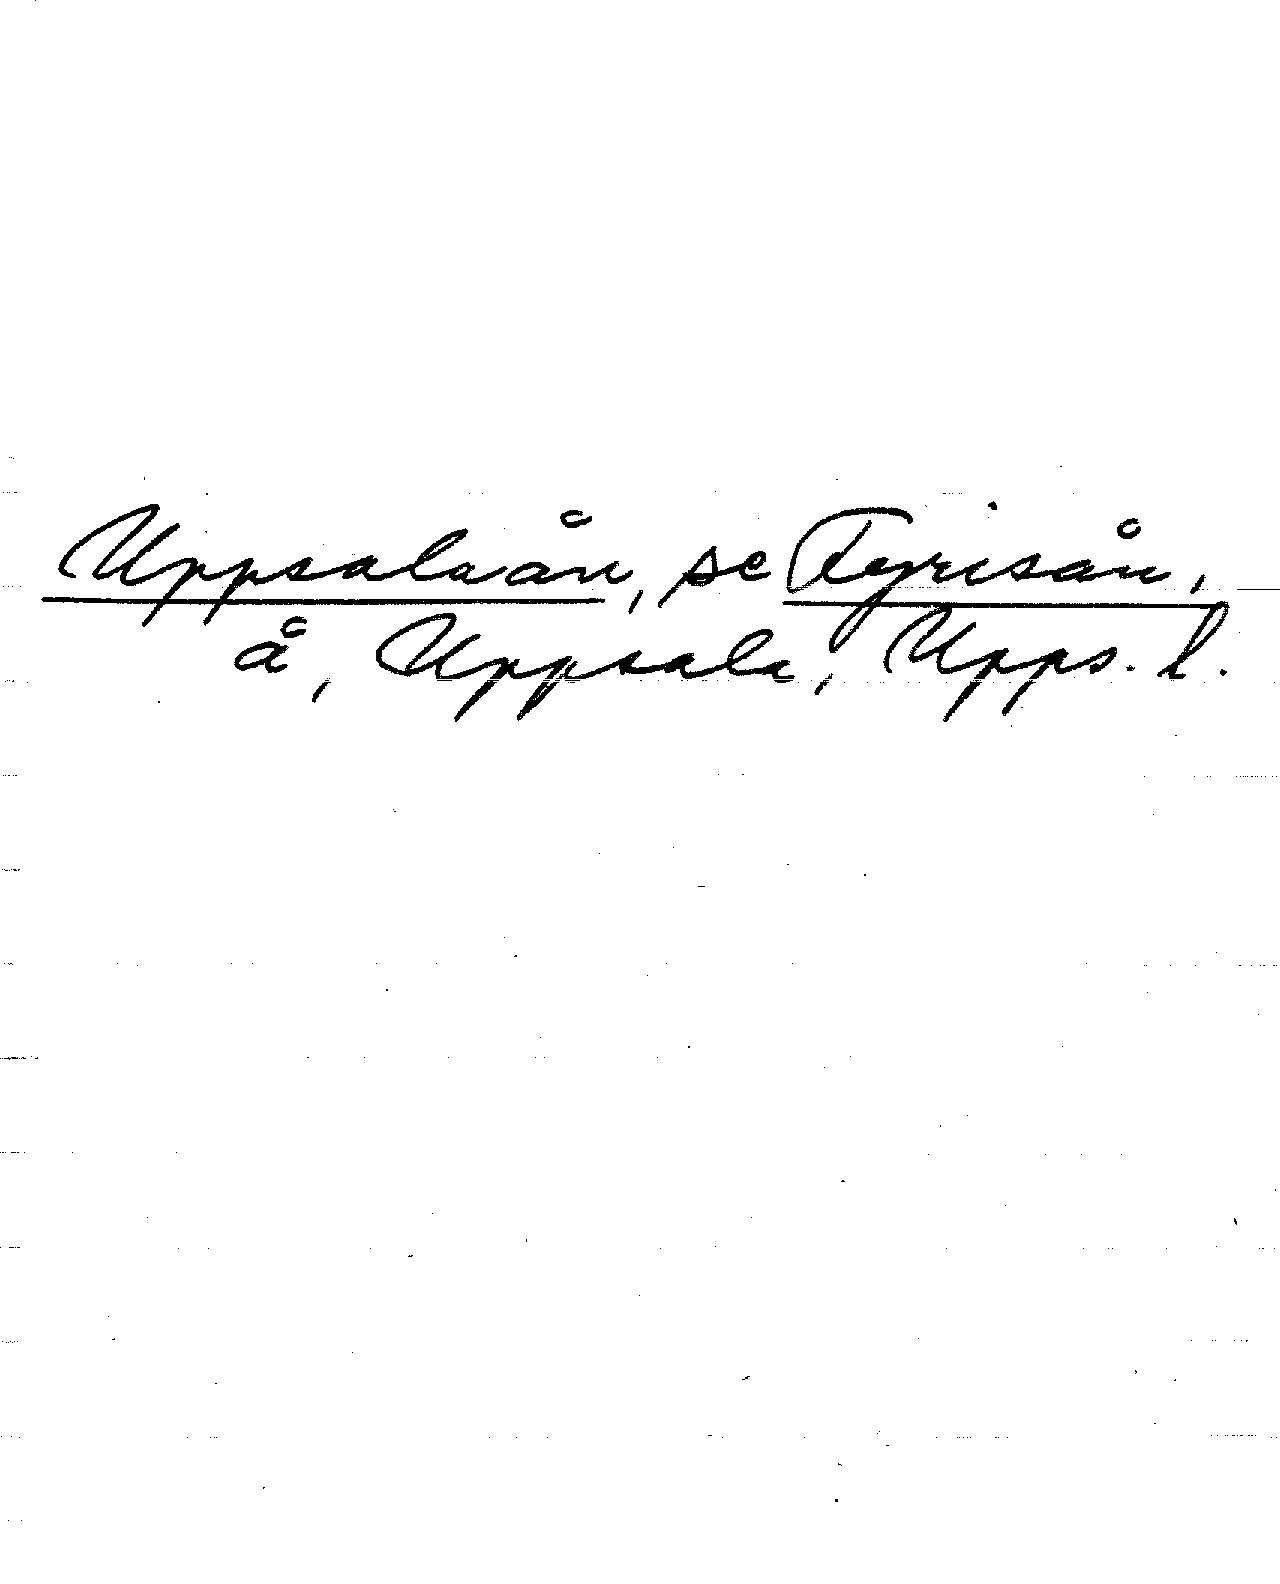 Uppsalaån, se Fyrisån,
å, Uppsala, Upps. l.